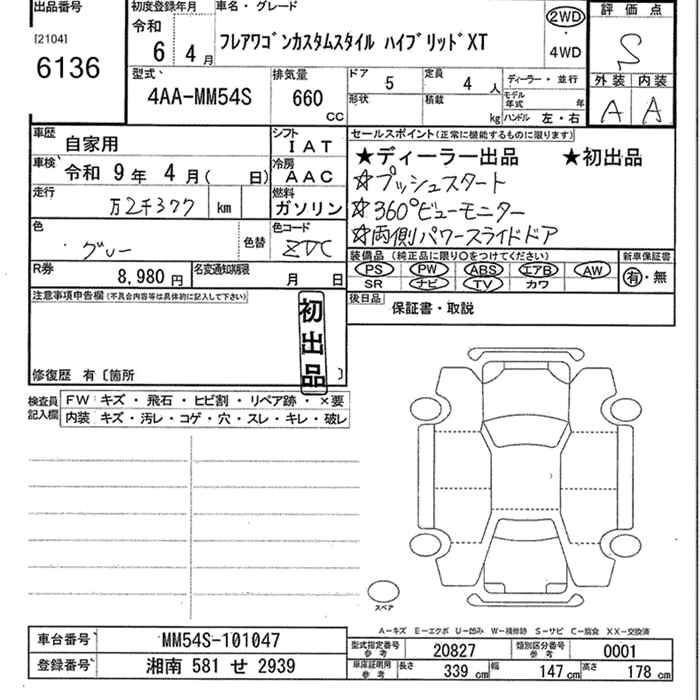 出品番号
[2104]
6136
初度登録年月
令和
6年 4月
車名・グレード
フレアワゴンカスタムスタイル ハイブリッドXT
2WD
4WD
評価点
S
外装 内装
A A
型式
4AA-MM54S
排気量
660
CC
ドア
5
定員
4人
形状
積載
kg
ディーラー・並行
モデル年式 年
ハンドル 左・右
車歴
自家用
シフト
IAT
車検
令和 9年 4月( 日)
冷房
AAC
走行
万2千377 km
燃料
ガソリン
色
グレー
色替
色コード
ZDC
R券
8,980円
名変通知期限
月 日
セールスポイント(正常に機能するものに限ります)
★ディーラー出品 ★初出品
☆プッシュスタート
☆360°ビューモニター
☆両側パワースライドドア
装備品 (純正品に限り○をつけてください)
PS PW ABS エアB AW
SR ナビ TV カワ
新車保証書
有・無
後日品
保証書・取説
注意事項申告欄(不具合内容等は具体的に記入して下さい)
初出品
修復歴 有〔箇所 〕
検査員記入欄
FW キズ・飛石・ヒビ割・リペア跡・×要
内装 キズ・汚レ・コゲ・穴・スレ・キレ・破レ
スペア
A-キズ E-エクボ U-凹み W-補修跡 S-サビ C-腐食 XX-交換済
車台番号
MM54S-101047
登録番号
湘南 581 せ 2939
型式指定番号 参考
20827
類別区分番号 参考
0001
車庫証明用 参考
長さ 339cm 幅 147cm 高さ 178cm